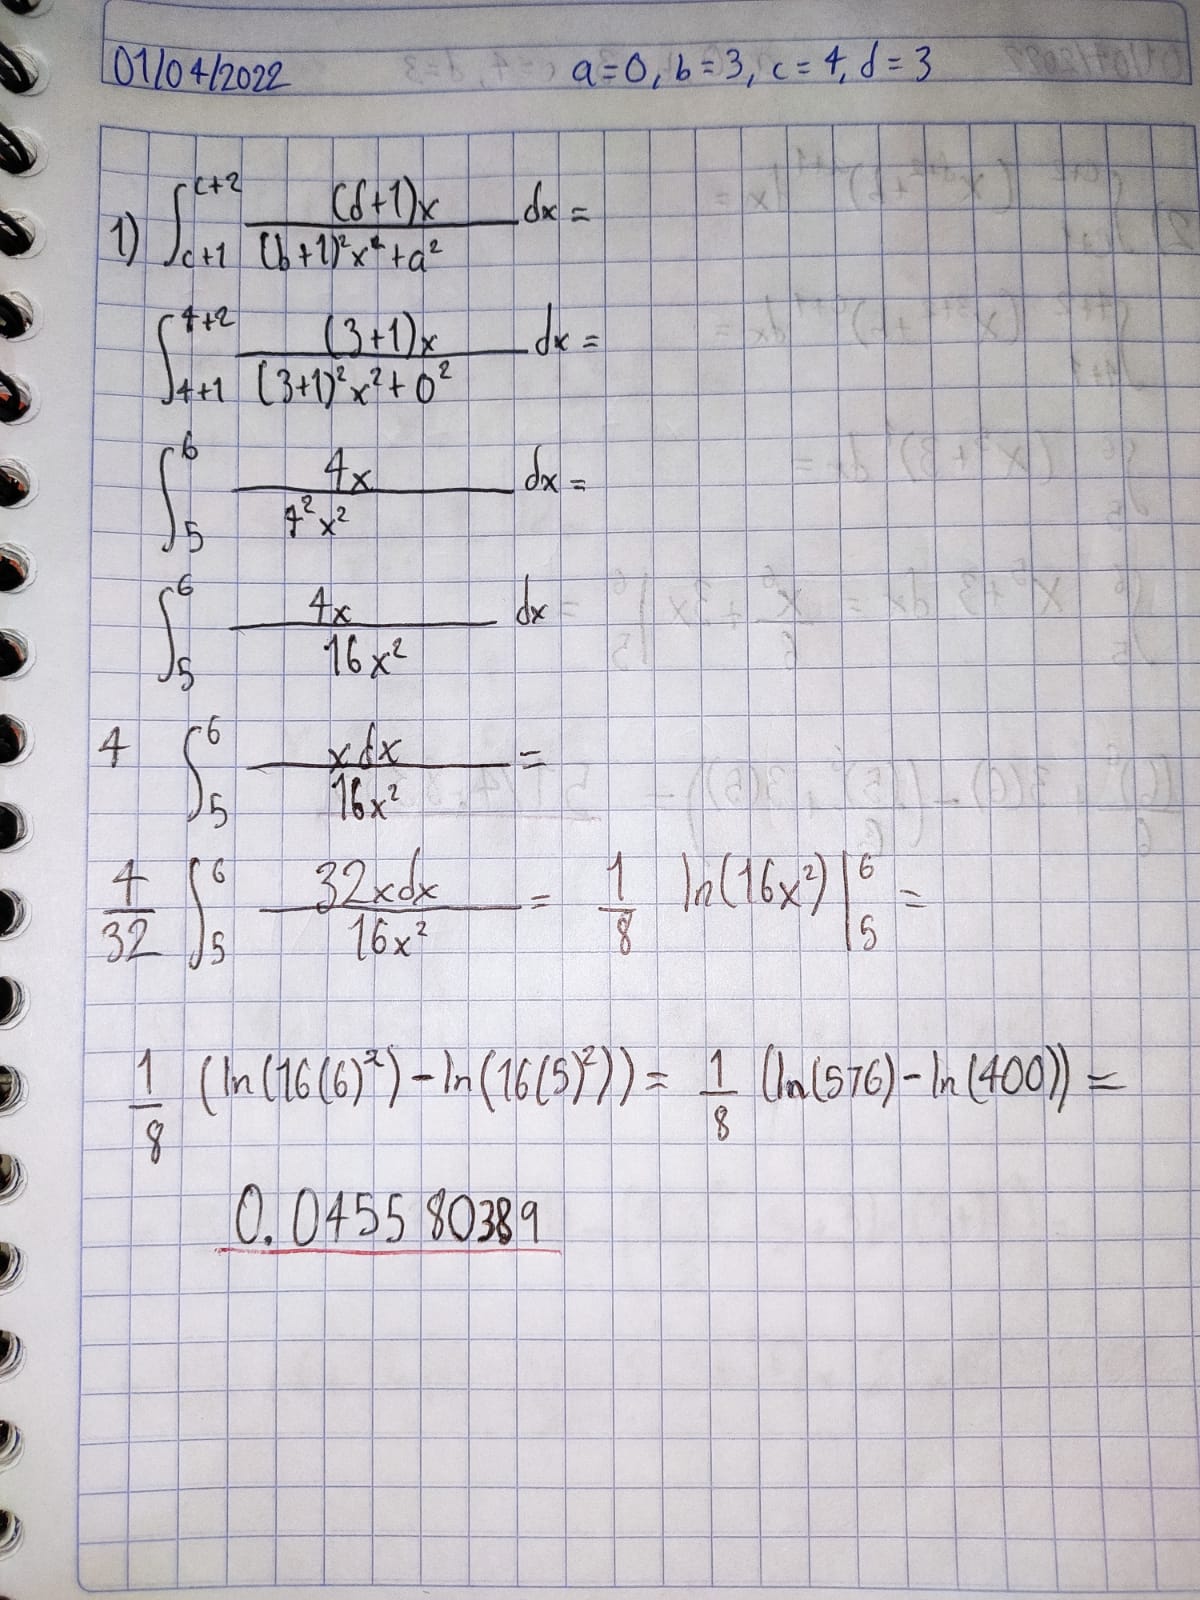 01/04/2022 a=0, b=3, c=4, d=3
1) ∫_{c+1}^{c+2} (d+1)x / ((b+1)²x²+a²) dx =
∫_{4+1}^{4+2} (3+1)x / ((3+1)²x²+0²) dx =
∫_5^6 4x / (4²x²) dx =
∫_5^6 4x / (16x²) dx
4 ∫_5^6 xdx / (16x²) =
4/32 ∫_5^6 32xdx / (16x²) = 1/8 ln(16x²)|_5^6 =
1/8 (ln(16(6)²)-ln(16(5)²)) = 1/8 (ln(576)-ln(400)) =
0.045580389